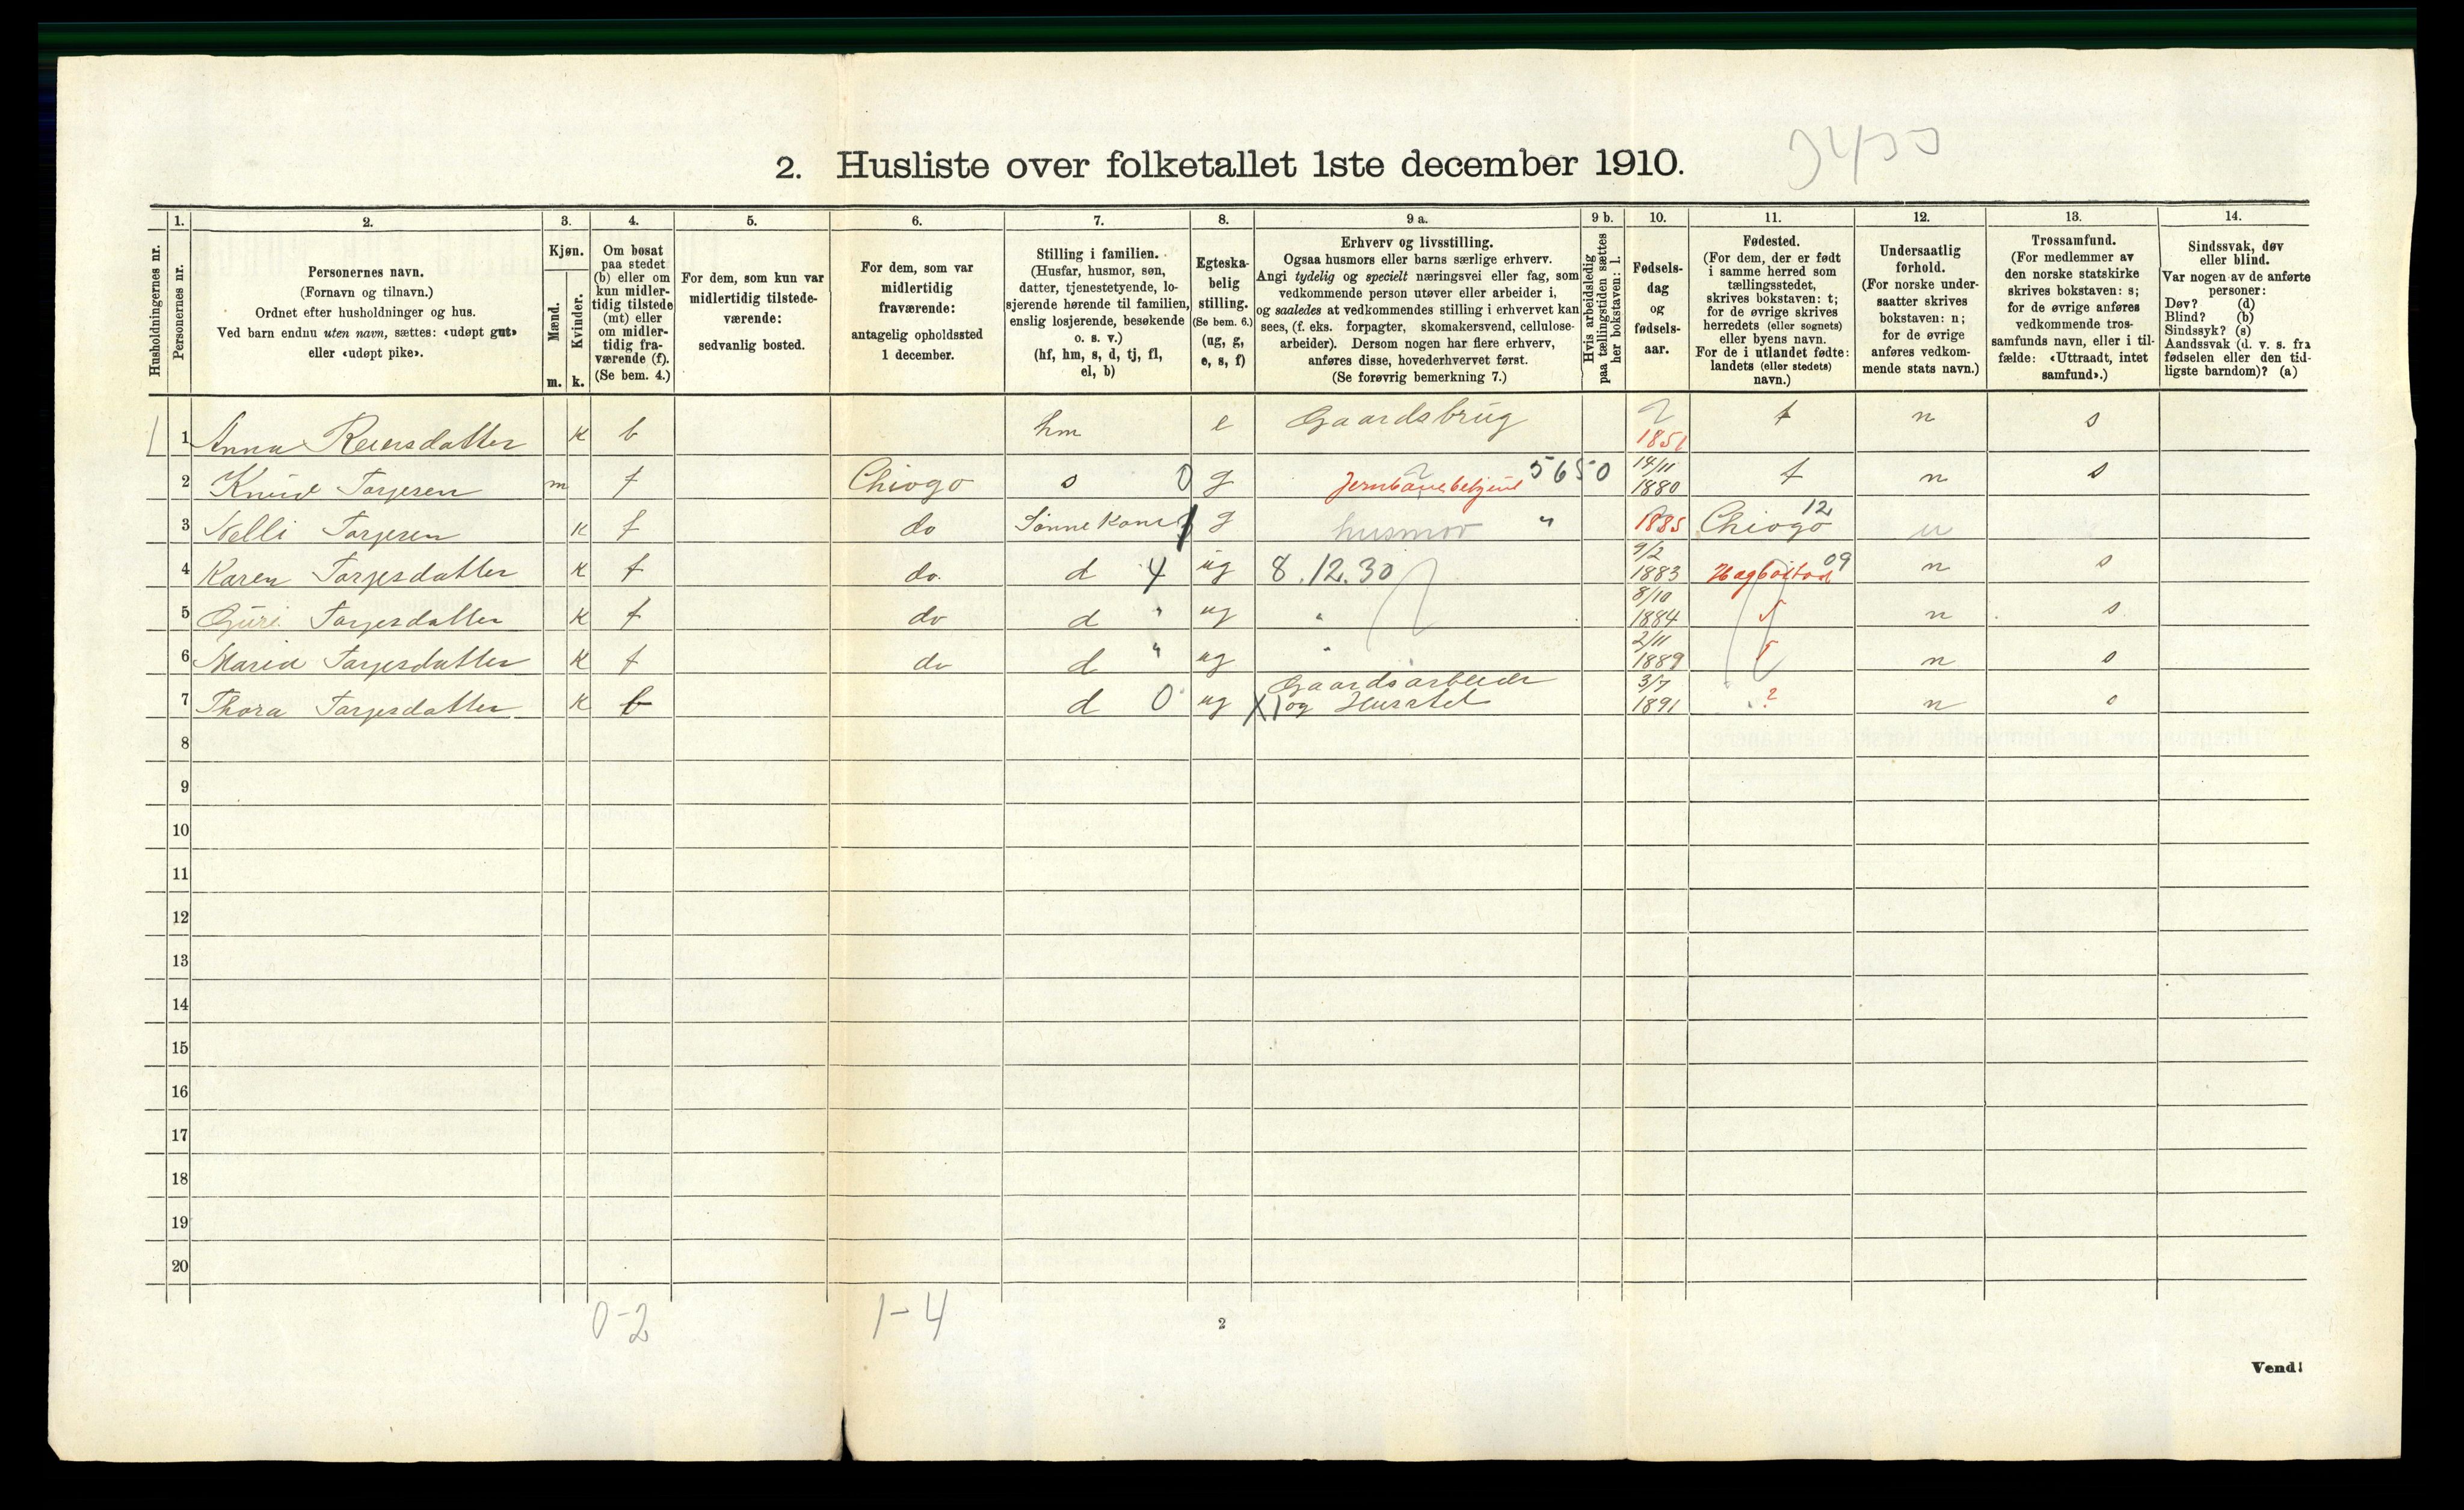 2. Husliste over folketallet 1ste december 1910.
Husholdningernes nr.
1. Personernes nr.
2. Personernes navn.
(Fornavn og tilnavn.)
Ordnet efter husholdninger og hus.
Ved barn endnu uten navn, sættes: «udøpt gut»
eller «udøpt pike».
3. Kjøn.
Mænd. m.
Kvinder. k.
4. Om bosat
paa stedet
(b) eller om
kun midler-
tidig tilstede
(mt) eller
om midler-
tidig fra-
værende (f).
(Se bem. 4.)
5. For dem, som kun var
midlertidig tilstede-
værende:
sedvanlig bosted.
6. For dem, som var
midlertidig
fraværende:
antagelig opholdssted
1 december.
7. Stilling i familien.
(Husfar, husmor, søn,
datter, tjenestetyende, lo-
sjerende hørende til familien,
enslig losjerende, besøkende
o. s. v.)
(hf, hm, s, d, tj, fl,
el, b)
8. Egteska-
belig
stilling.
(Se bem. 6.)
(ug, g,
e, s, f)
9 a. Erhverv og livsstilling.
Ogsaa husmors eller barns særlige erhverv.
Angi tydelig og specielt næringsvei eller fag, som
vedkommende person utøver eller arbeider i,
og saaledes at vedkommendes stilling i erhvervet kan
sees, (f. eks. forpagter, skomakersvend, cellulose-
arbeider). Dersom nogen har flere erhverv,
anføres disse, hovederhvervet først.
(Se forøvrig bemerkning 7.)
9 b. Hvis arbeidsledig
paa tællingstiden sættes
her bokstaven: l.
10. Fødsels-
dag
og
fødsels-
aar.
11. Fødested.
(For dem, der er født
i samme herred som
tællingsstedet,
skrives bokstaven: t;
for de øvrige skrives
herredets (eller sognets)
eller byens navn.
For de i utlandet fødte:
landets (eller stedets)
navn.)
12. Undersaatlig
forhold.
(For norske under-
saatter skrives
bokstaven: n;
for de øvrige
anføres vedkom-
mende stats navn.)
13. Trossamfund.
(For medlemmer av
den norske statskirke
skrives bokstaven: s;
for de øvrige anføres
vedkommende tros-
samfunds navn, eller i til-
fælde: «Uttraadt, intet
samfund».)
14. Sindssvak, døv
eller blind.
Var nogen av de anførte
personer:
Døv? (d)
Blind? (b)
Sindssyk? (s)
Aandssvak (d. v. s. fra
fødselen eller den tid-
ligste barndom)? (a)
1 1 Anna Reiersdatter k b hm e Gaardsbrug 1851 t n s
2 Knud Torjesen m f Chiogo s 0 g Jernbanebetjent 5650 14/11 1880 t n s
3 Nelli Torjesen k f do Sønnekone g husmor " 1885 Chiogo 12
4 Karen Torjesdatter k f do. d 4 ug 8.12.30 9/2 1883 Hægbostad 09 n s
5 Guri Torjesdatter k f do d " ug " 8/10 1884 n s
6 Maria Torjesdatter k f do d " ug " 2/11 1889 n s
7 Thora Torjesdatter k b d 0 ug X1 Gaardsarbeide og Husstel 3/7 1891 ? n s
8
9
10
11
12
13
14
15
16
17
18
19
20
0-2 1-4
2
Vend!